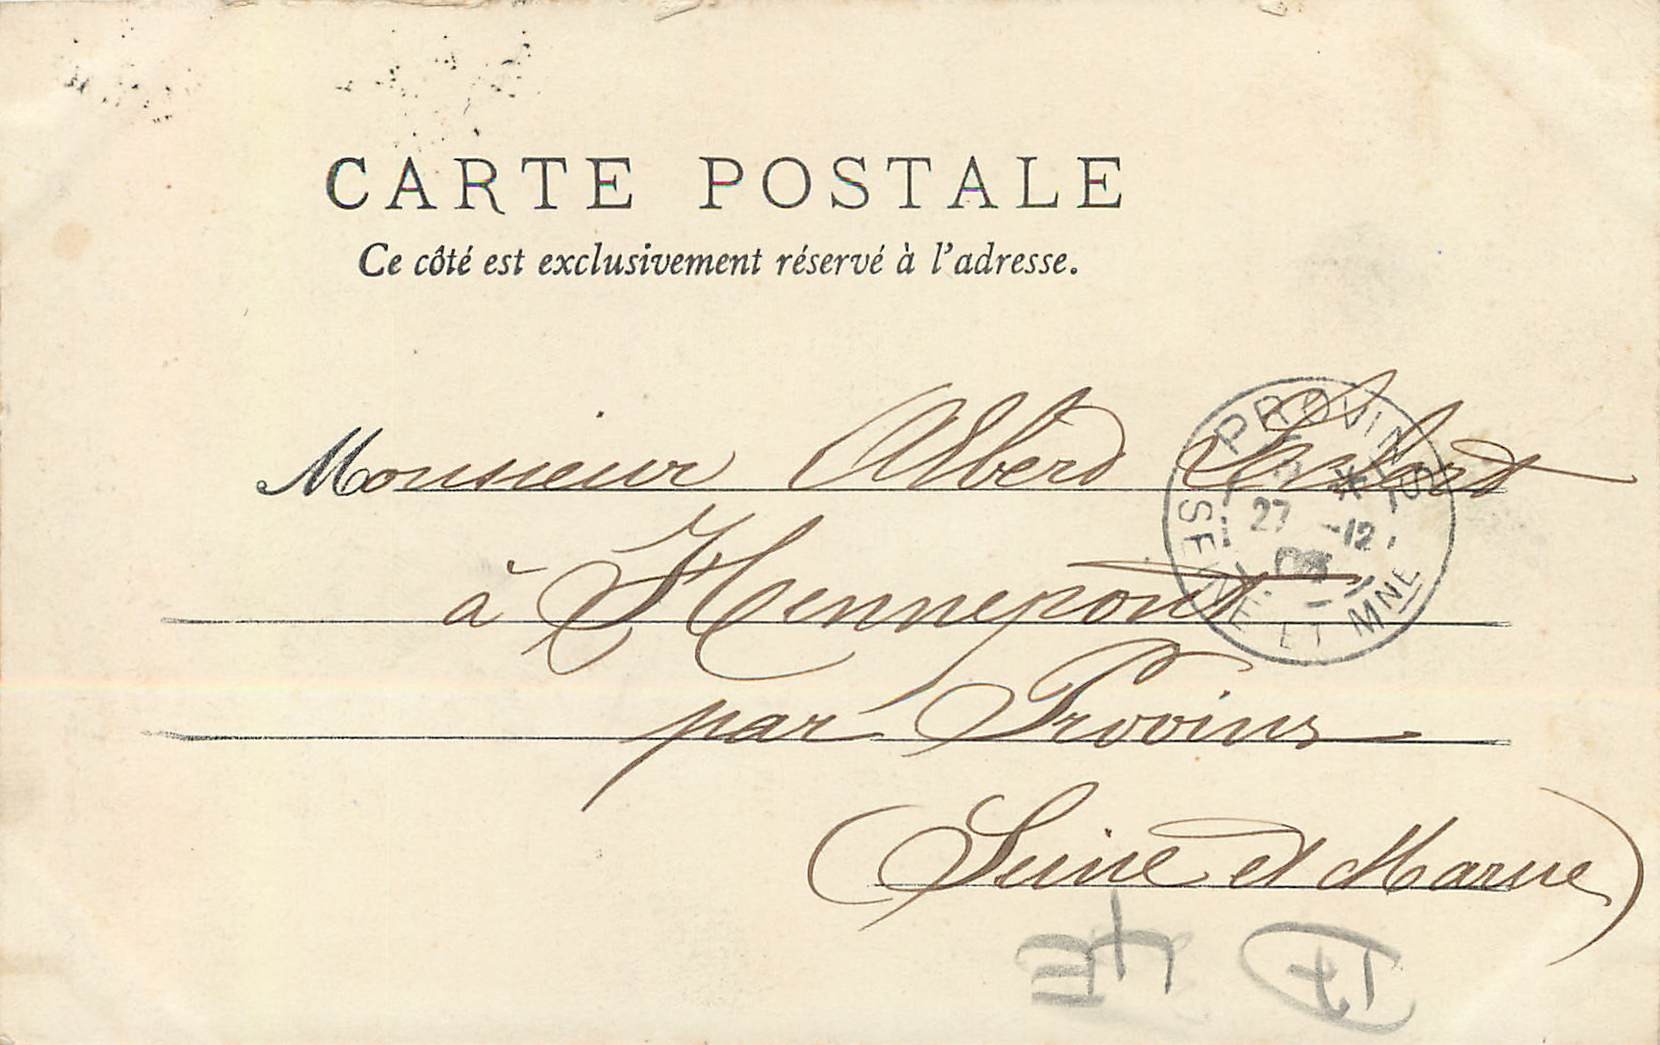 CARTE POSTALE
Ce côté est exclusivement réservé à l'adresse.
Monsieur Albert
à Hennepont
par Provins
(Seine et Marne)
PROVINS
27 -12
SEINE ET MNE